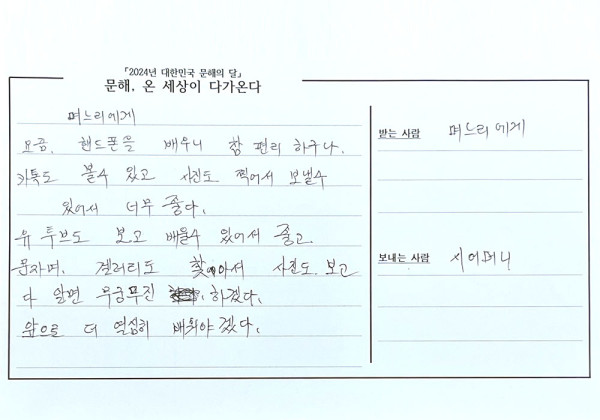 「2024년 대한민국 문해의 달」
문해, 온 세상이 다가온다
며느리에게
요즘, 핸드폰을 배우니 참 편리 하구나.
카톡도 볼수 있고 사진도 찍어서 보낼수
있어서 너무 좋다.
유투브도 보고 배울수 있어서 좋고.
문자며, 겔러리도 찾아서 사진도 보고
다 알면 무궁무진 하겠다.
앞으로 더 열심히 배워야 겠다.
받는 사람 며느리에게
보내는 사람 시어머니